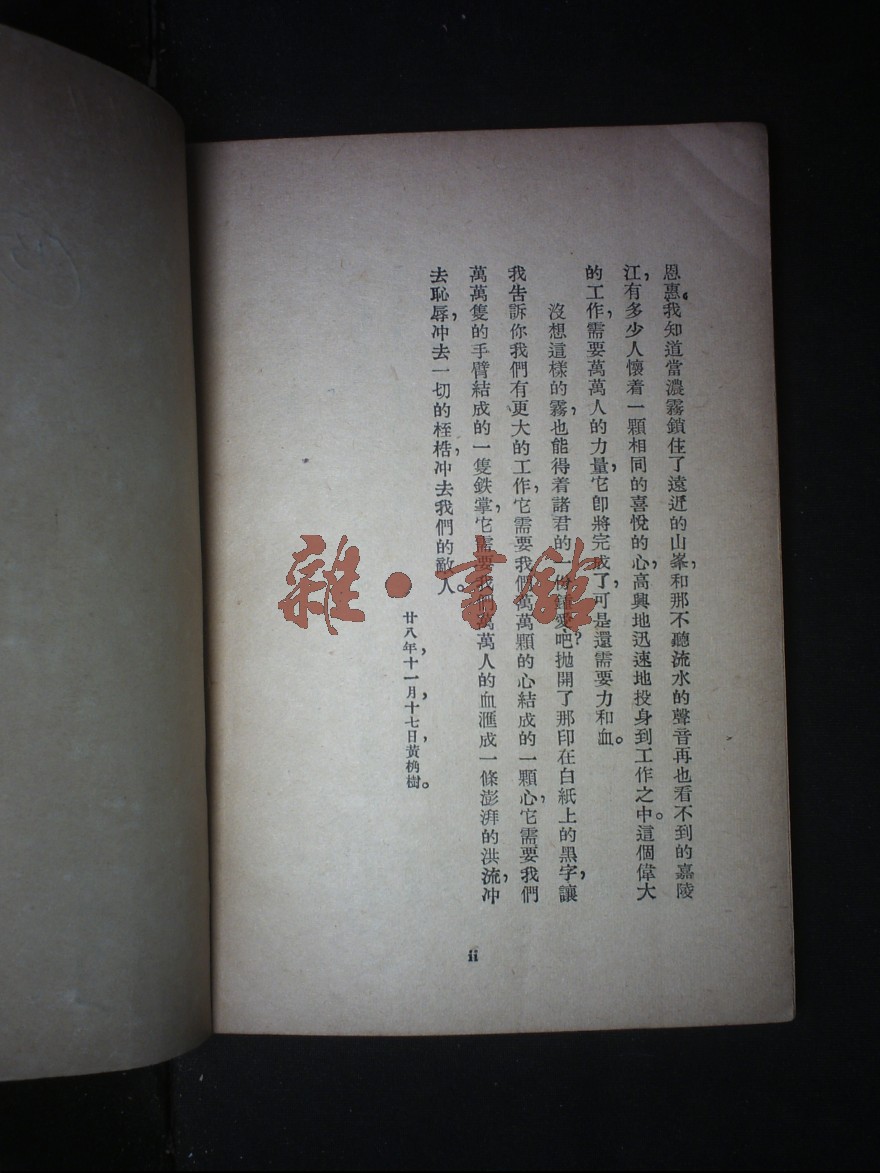 恩惠。我知道當濃霧鎖住了遠近的山峯，和那不聽流水的聲音再也看不到的嘉陵
江，有多少人懷着一顆相同的喜悅的心，高興地迅速地投身到工作之中。這個偉大
的工作，需要萬萬人的力量，它卽將完成了，可是還需要力和血。
沒想這樣的霧，也能得着諸君的一份鍾愛吧？拋開了那印在白紙上的黑字，讓
我告訴你我們有更大的工作，它需要我們萬萬顆的心結成的一顆心，它需要我們
萬萬隻的手臂結成的一隻鉄掌，它需要我們萬萬人的血滙成一條澎湃的洪流，冲
去恥辱，冲去一切的桎梏，冲去我們的敵人。
廿八年，十一月，十七日，黃桷樹。
ii
雜·書舘